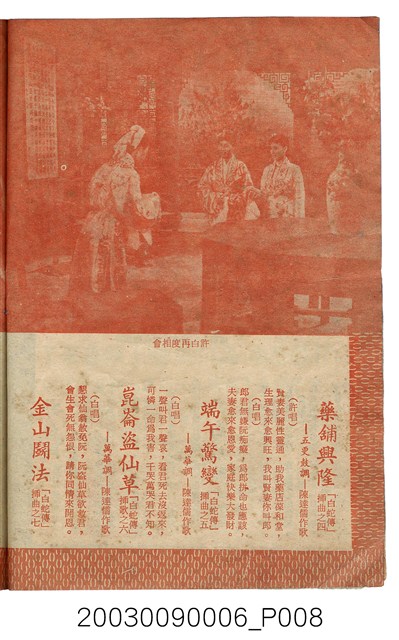 會相度再白許
藥舖興隆「白蛇傳」插曲之四
—五更鼓調—陳達儒作歌
（許唱）
賢妻美麗性靈通，助我藥店葆和堂，
生理愈來愈興旺，我叫賢妻你叫郎。
（白唱）
郎君無嫌阮痴癡，為郎拼命也應該，
夫妻愈來愈恩愛，家庭快樂大發財。
端午驚變「白蛇傳」插曲之五
—萬華調—陳達儒作歌
（白唱）
一聲叫君一聲哀，看君死去沒返來，
可憐一命為我害，千哭萬哭君不知。
崑崙盜仙草「白蛇傳」插歌之六
—萬華調—陳達儒作歌
（白唱）
懇求仙翁赦免阮，阮盜仙草欲救君，
會生會死無怨恨，請你同情來開恩。
金山鬪法「白蛇傳」插曲之七
20030090006_P008